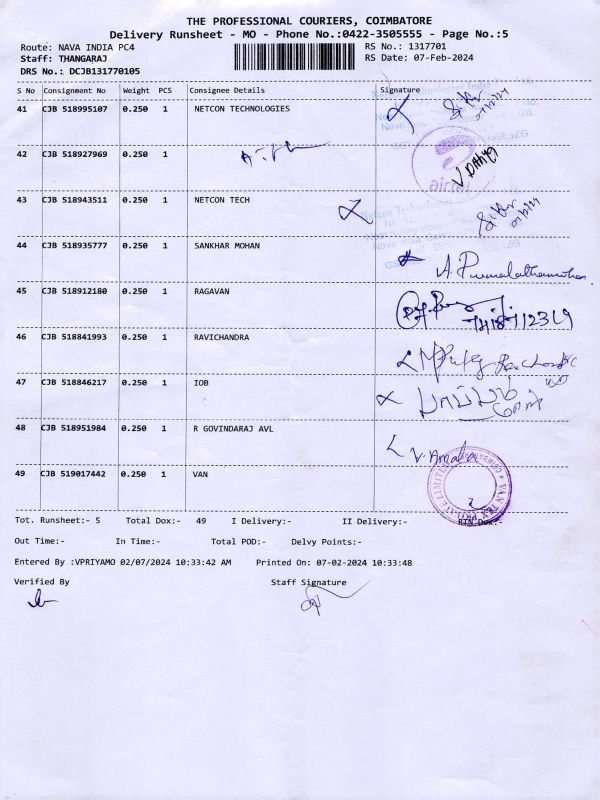 THE PROFESSIONAL COURIERS, COIMBATORE
Delivery Runsheet - MO - Phone No.:0422-3505555 - Page No.:5
Route: NAVA INDIA PC4 RS No.: 1317701
Staff: THANGARAJ RS Date: 07-Feb-2024
DRS No.: DCJB131770105
S No Consignment No Weight PCS Consignee Details Signature
41 CJB 518995107 0.250 1 NETCON TECHNOLOGIES
42 CJB 518927969 0.250 1
airtel
43 CJB 518943511 0.250 1 NETCON TECH
44 CJB 518935777 0.250 1 SANKHAR MOHAN
45 CJB 518912180 0.250 1 RAGAVAN
46 CJB 518841993 0.250 1 RAVICHANDRA
47 CJB 518846217 0.250 1 IOB
48 CJB 518951984 0.250 1 R GOVINDARAJ AVL
V. Amala
49 CJB 519017442 0.250 1 VAN
Tot. Runsheet:- 5 Total Dox:- 49 I Delivery:- II Delivery:- RTN Dox:-
Out Time:- In Time:- Total POD:- Delvy Points:-
Entered By :VPRIYAMO 02/07/2024 10:33:42 AM Printed On: 07-02-2024 10:33:48
Verified By Staff Signature